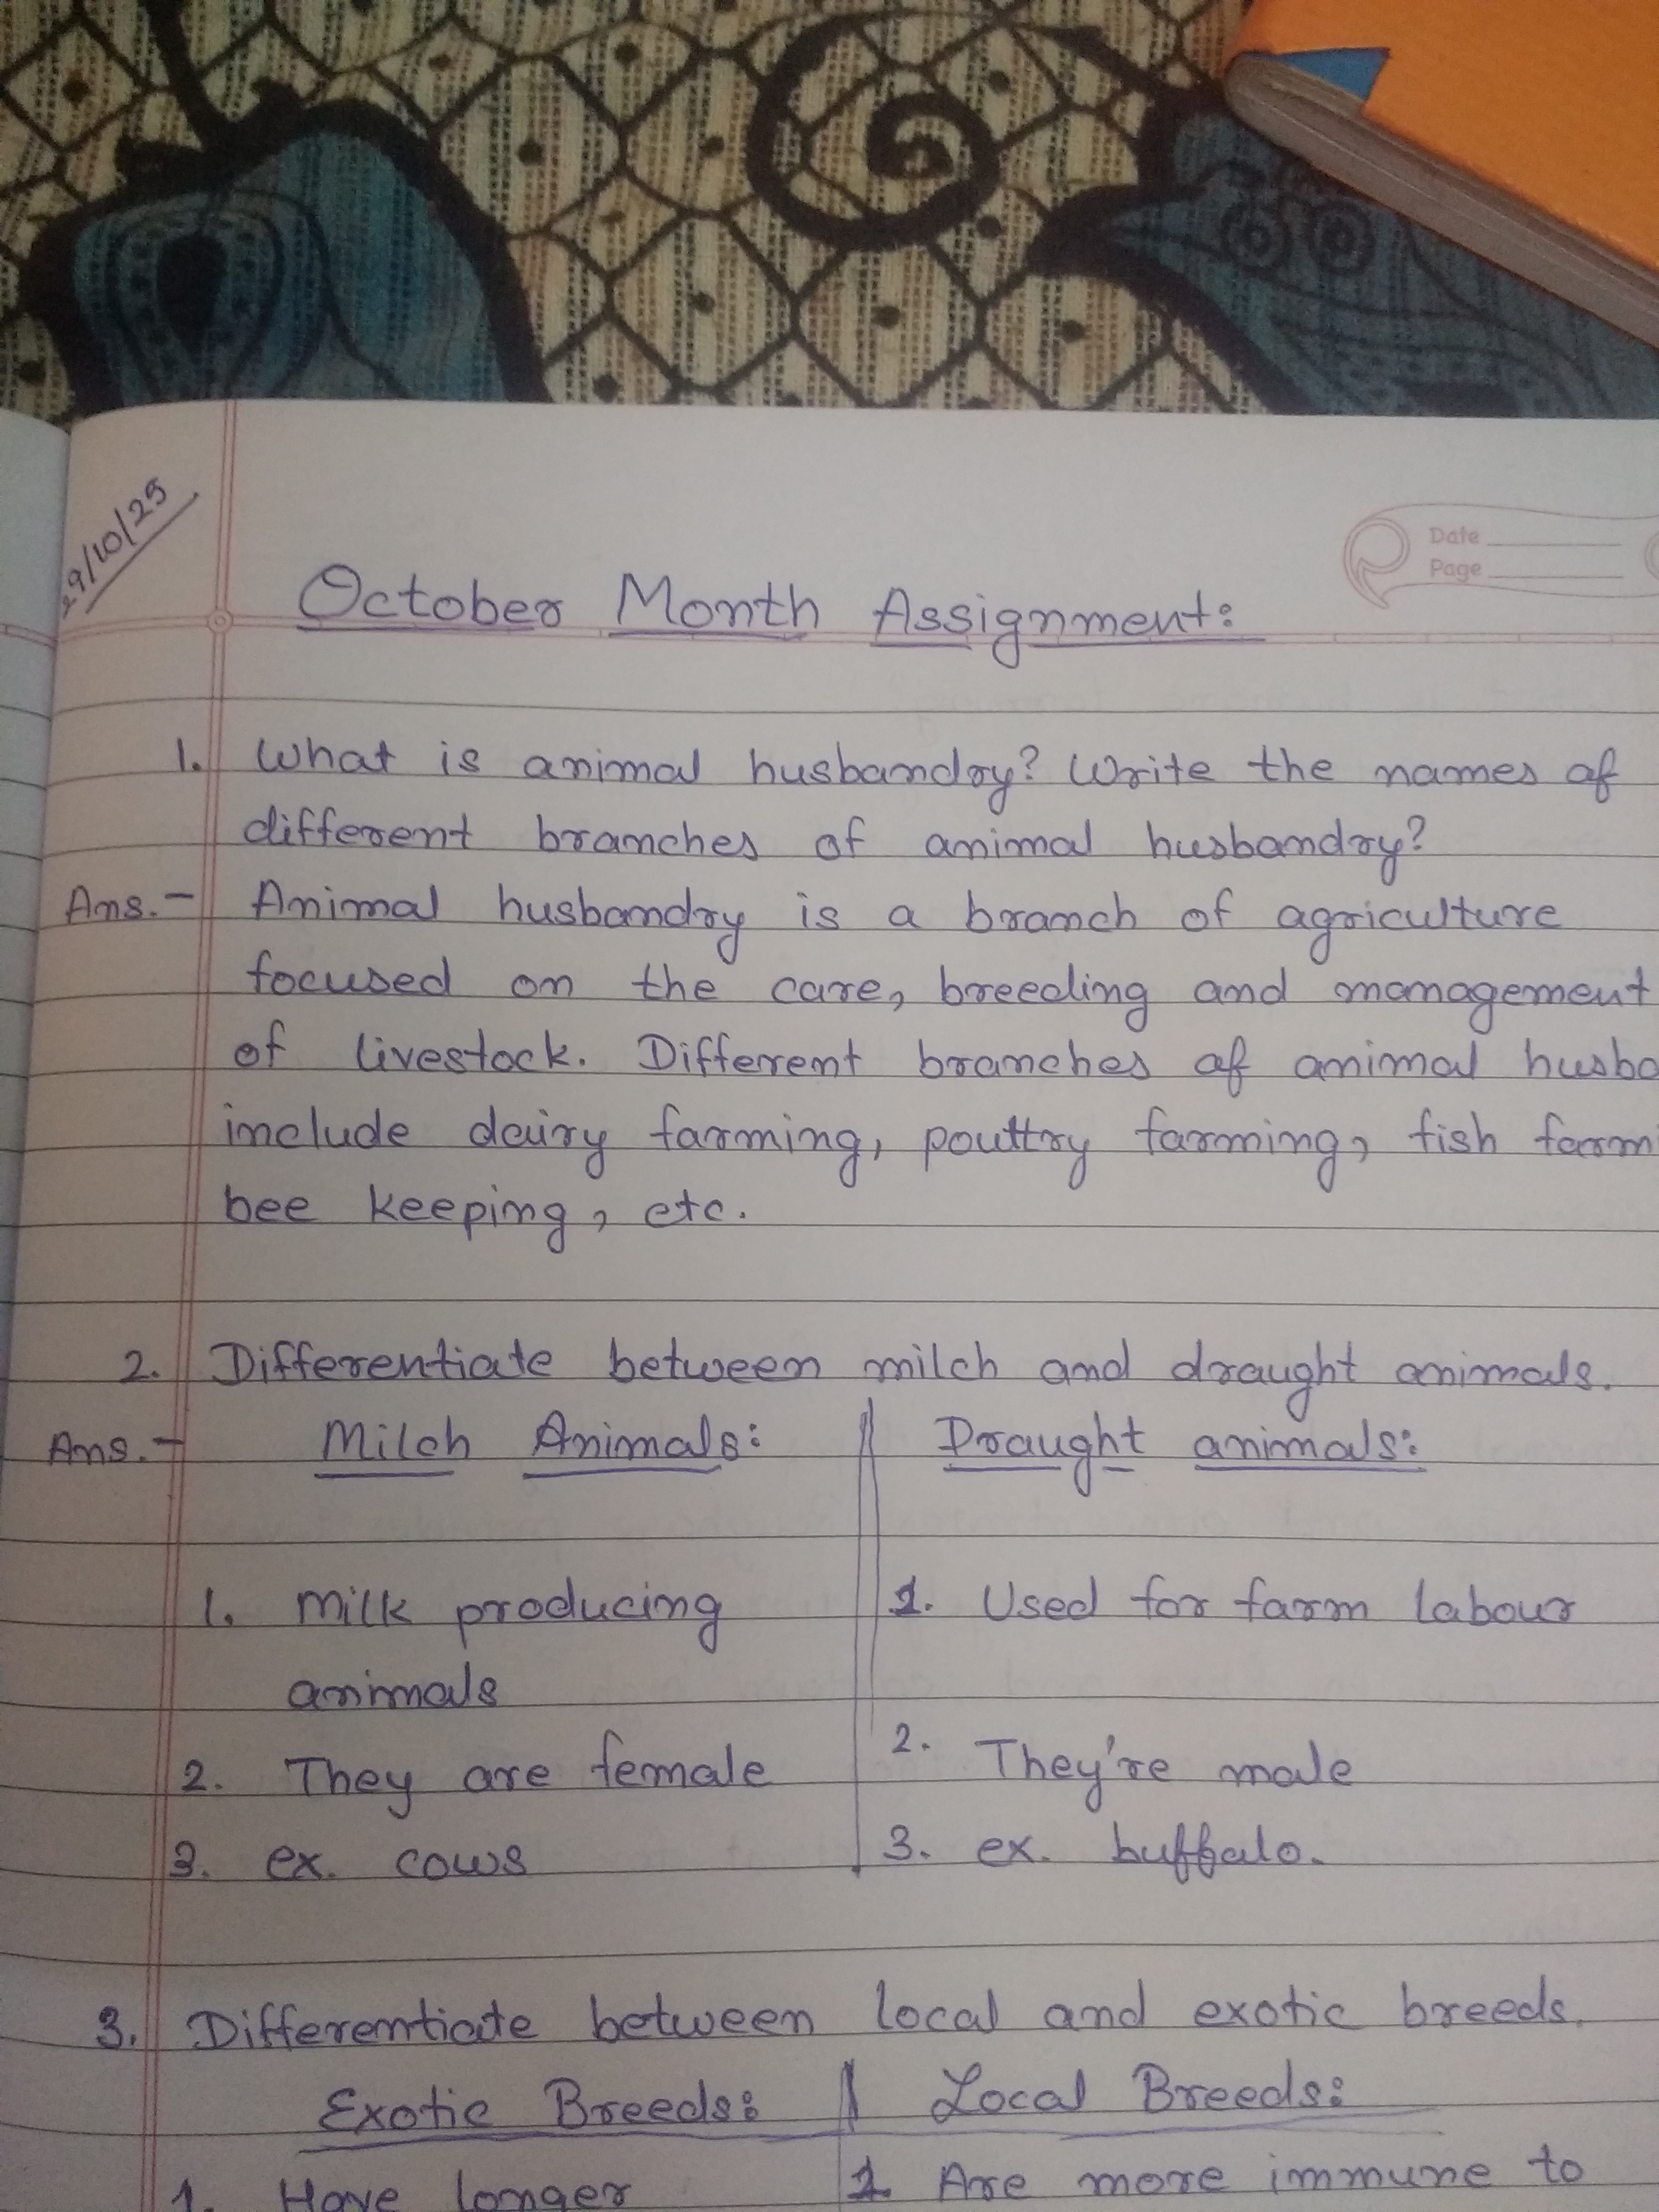 29/10/25
Date
Page
October Month Assignment:
1. What is animal husbandry? Write the names of
different branches of animal husbandry?
Ans.- Animal husbandry is a branch of agriculture
focused on the care, breeding and management
of livestock. Different branches of animal husba
include dairy farming, poultry farming, fish farm
bee keeping, etc.
2. Differentiate between milch and draught animals.
Ans.- Milch Animals: Draught animals:
1. Milk producing 1. Used for farm labour
animals
2. They are female 2. They're male
3. ex. cows 3. ex. buffalo.
3. Differentiate between local and exotic breeds.
Exotic Breeds: Local Breeds:
1. Have longer 1. Are more immune to